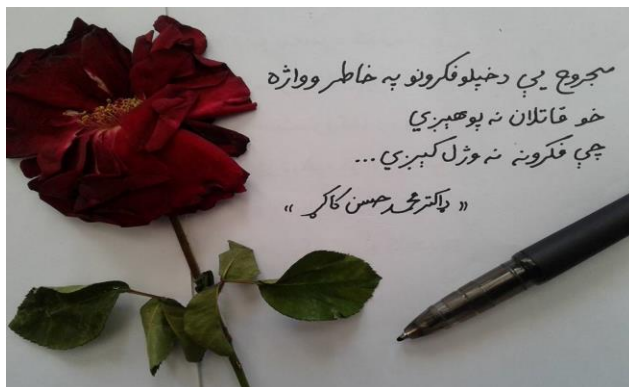 مجروح یې د خپلو فکرونو په خاطر وواژه
خو قاتلان نه پوهېږي
چې فکرونه نه وژل کېږي...
«ډاکتر محمد حسن کاکړ»